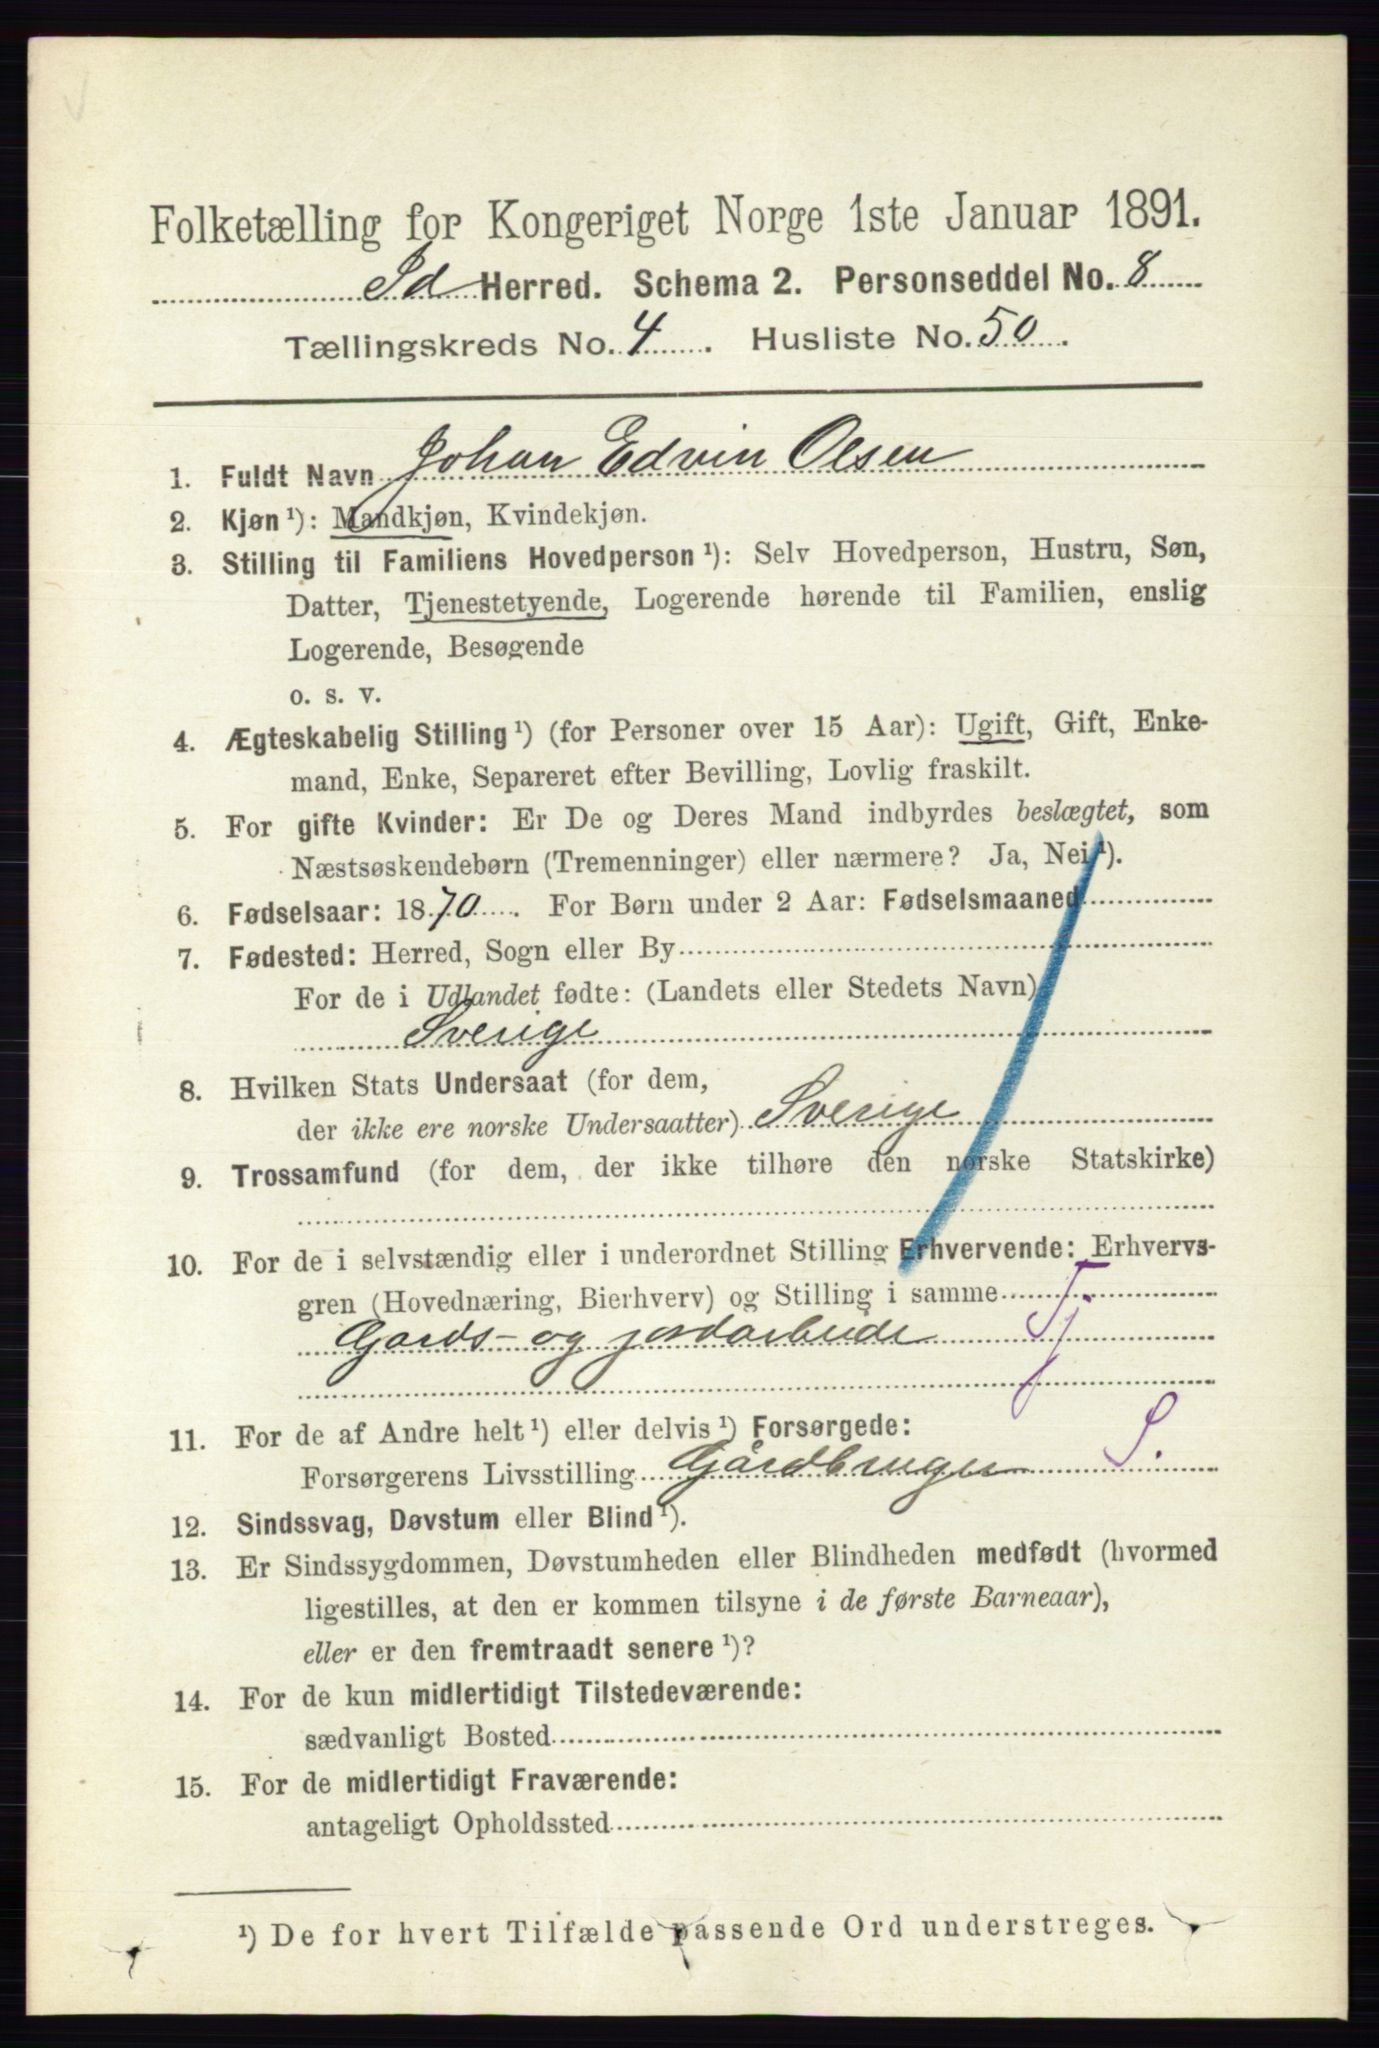 Folketælling for Kongeriget Norge 1ste Januar 1891.
Id Herred. Schema 2. Personseddel No. 8
Tællingskreds No. 4. Husliste No. 50.
1. Fuldt Navn Johan Edvin Olsen
2. Kjøn ¹): Mandkjøn, Kvindekjøn.
3. Stilling til Familiens Hovedperson ¹): Selv Hovedperson, Hustru, Søn,
Datter, Tjenestetyende, Logerende hørende til Familien, enslig
Logerende, Besøgende
o. s. v.
4. Ægteskabelig Stilling ¹) (for Personer over 15 Aar): Ugift, Gift, Enke-
mand, Enke, Separeret efter Bevilling, Lovlig fraskilt.
5. For gifte Kvinder: Er De og Deres Mand indbyrdes beslægtet, som
Næstsøskendebørn (Tremenninger) eller nærmere? Ja, Nei ¹).
6. Fødselsaar: 1870. For Børn under 2 Aar: Fødselsmaaned
7. Fødested: Herred, Sogn eller By
For de i Udlandet fødte: (Landets eller Stedets Navn)
Sverige
8. Hvilken Stats Undersaat (for dem,
der ikke ere norske Undersaatter) Sverige
9. Trossamfund (for dem, der ikke tilhøre den norske Statskirke)
10. For de i selvstændig eller i underordnet Stilling Erhvervende: Erhvervs-
gren (Hovednæring, Bierhverv) og Stilling i samme
Gards- og jordarbeide Tj.
11. For de af Andre helt ¹) eller delvis ¹) Forsørgede:
Forsørgerens Livsstilling Gårdbruger S.
12. Sindssvag, Døvstum eller Blind ¹).
13. Er Sindssygdommen, Døvstumheden eller Blindheden medfødt (hvormed
ligestilles, at den er kommen tilsyne i de første Barneaar),
eller er den fremtraadt senere ¹)?
14. For de kun midlertidigt Tilstedeværende:
sædvanligt Bosted
15. For de midlertidigt Fraværende:
antageligt Opholdssted
¹) De for hvert Tilfælde passende Ord understreges.